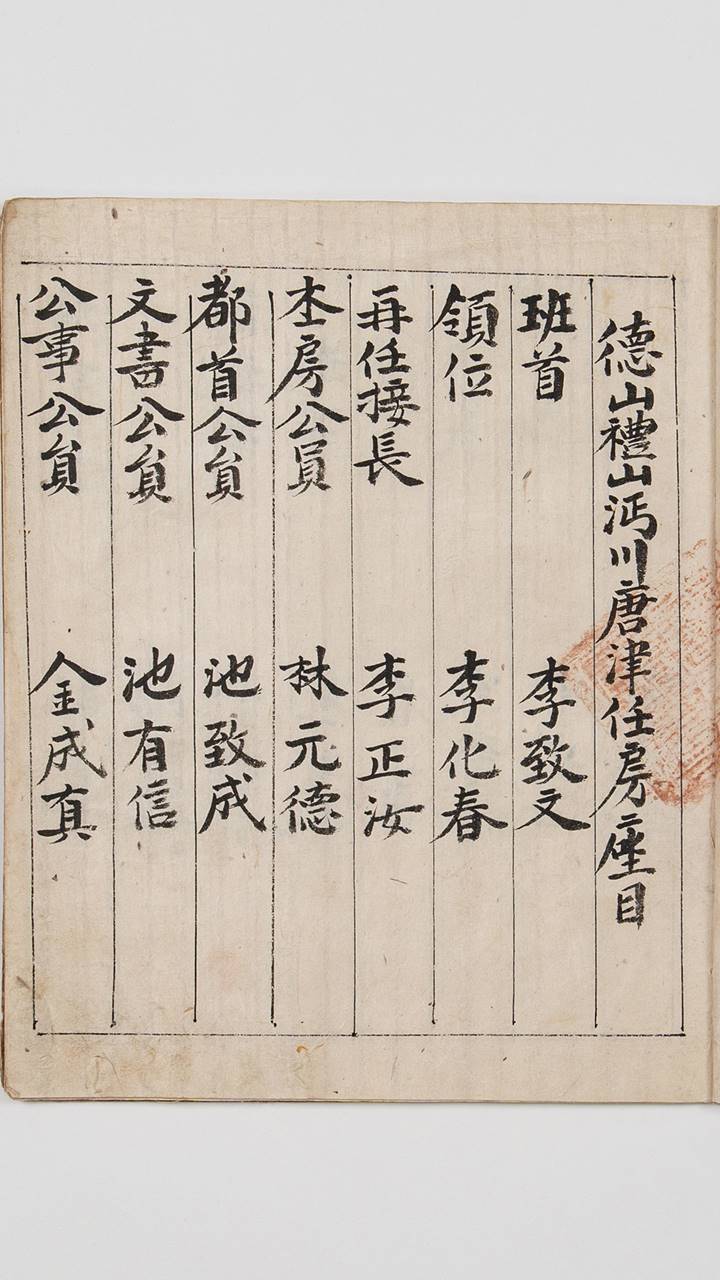 德山禮山沔川唐津任房座目
班首 李致文
領位 李化春
再任接長 李正汝
本房公員 林元德
都首公員 池致成
文書公員 池有信
公事公員 金成真